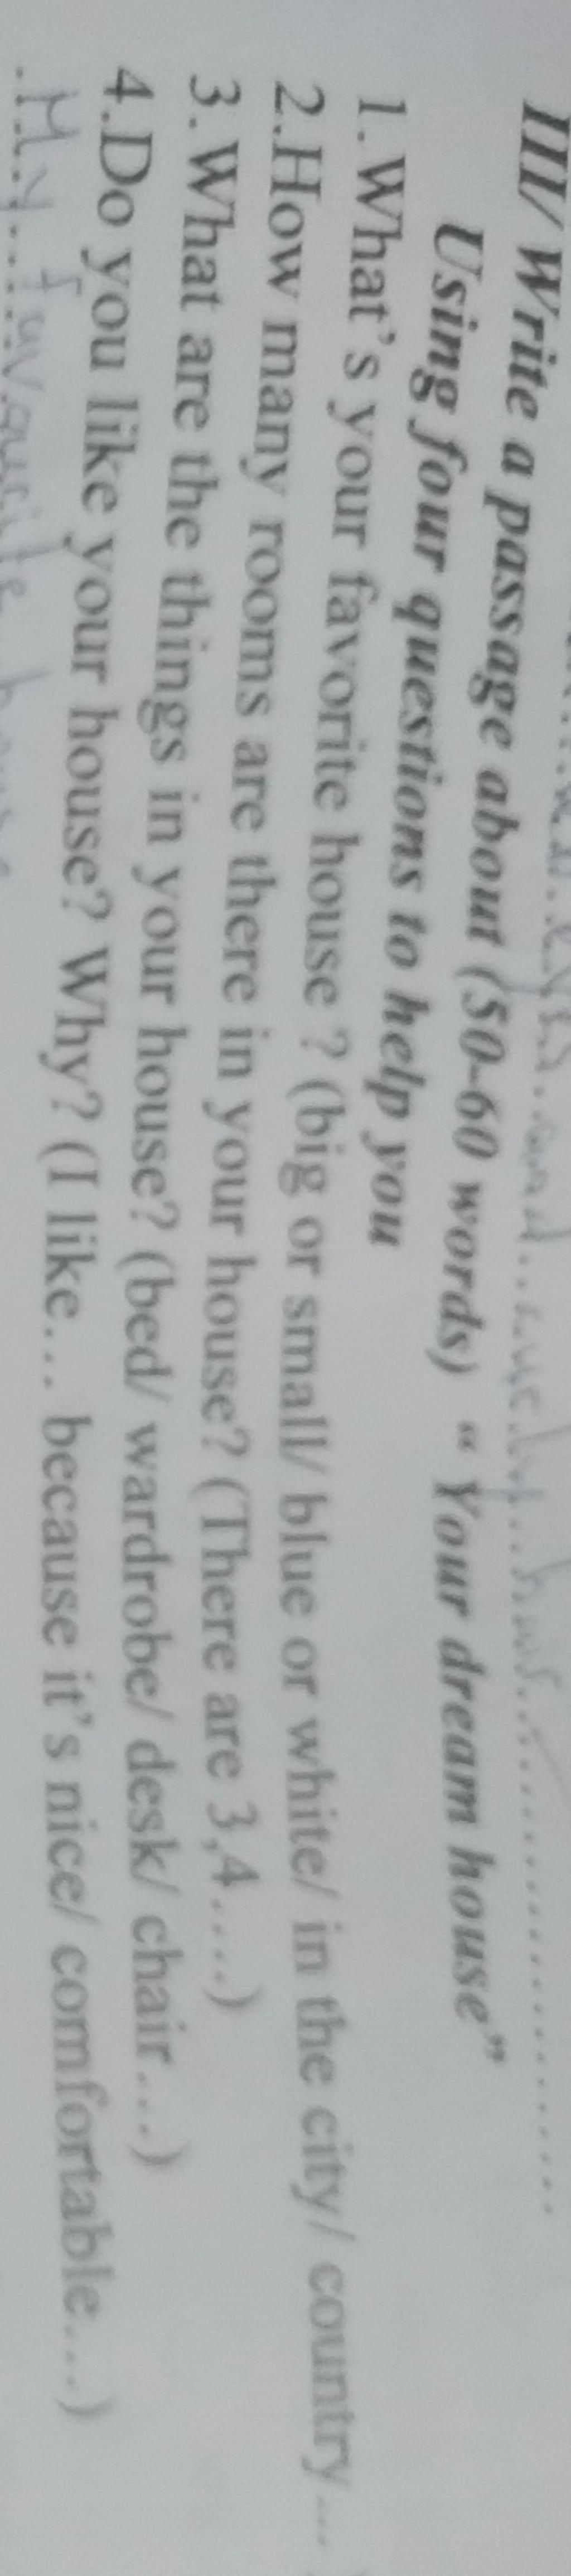 III/ Write a passage about (50-60 words) “ Your dream house”
Using four questions to help you
1.What’s your favorite house ? (big or small/ blue or white/ in the city/ country...
2.How many rooms are there in your house? (There are 3,4....)
3.What are the things in your house? (bed/ wardrobe/ desk/ chair...)
4.Do you like your house? Why? (I like... because it’s nice/ comfortable...)
My